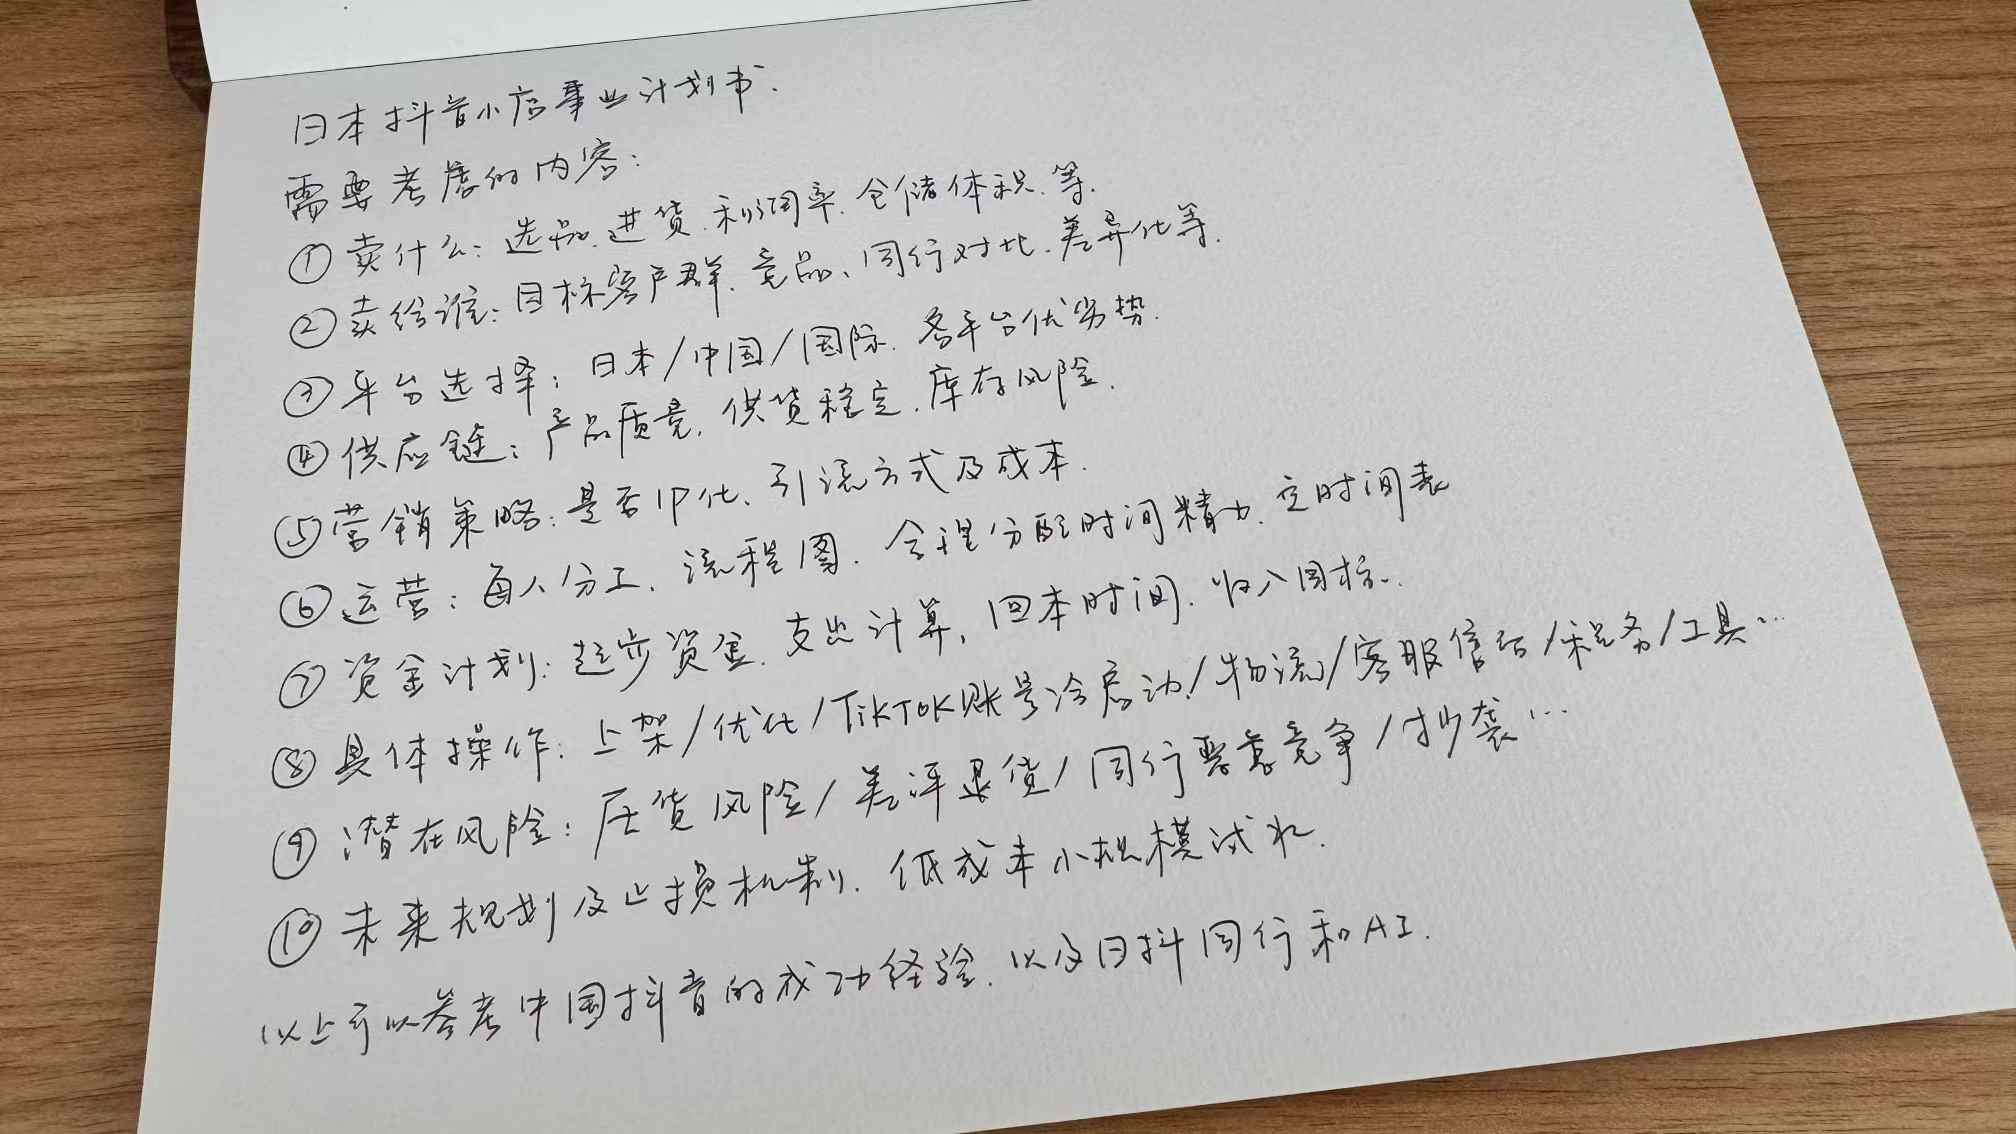 日本抖音小店事业计划书.
需要考虑的内容:
① 卖什么: 选品、进货、利润率、仓储体积、等.
② 卖给谁: 目标客户群、竞品、同行对比、差异化等.
③ 平台选择: 日本/中国/国际、各平台优劣势.
④ 供应链: 产品质量, 供货稳定、库存风险.
⑤ 营销策略: 是否IP化、引流方式及成本.
⑥ 运营: 每人分工、流程图、合理分配时间精力、定时间表
⑦ 资金计划: 起步资金、支出计算, 回本时间、收入目标..
⑧ 具体操作: 上架/优化/TikTok账号冷启动/物流/客服售后/税务/工具...
⑨ 潜在风险: 压货风险/差评退货/同行恶意竞争/抄袭...
⑩ 未来规划及止损机制、低成本小规模试水.
以上可以参考中国抖音的成功经验、以及日抖同行和AI.